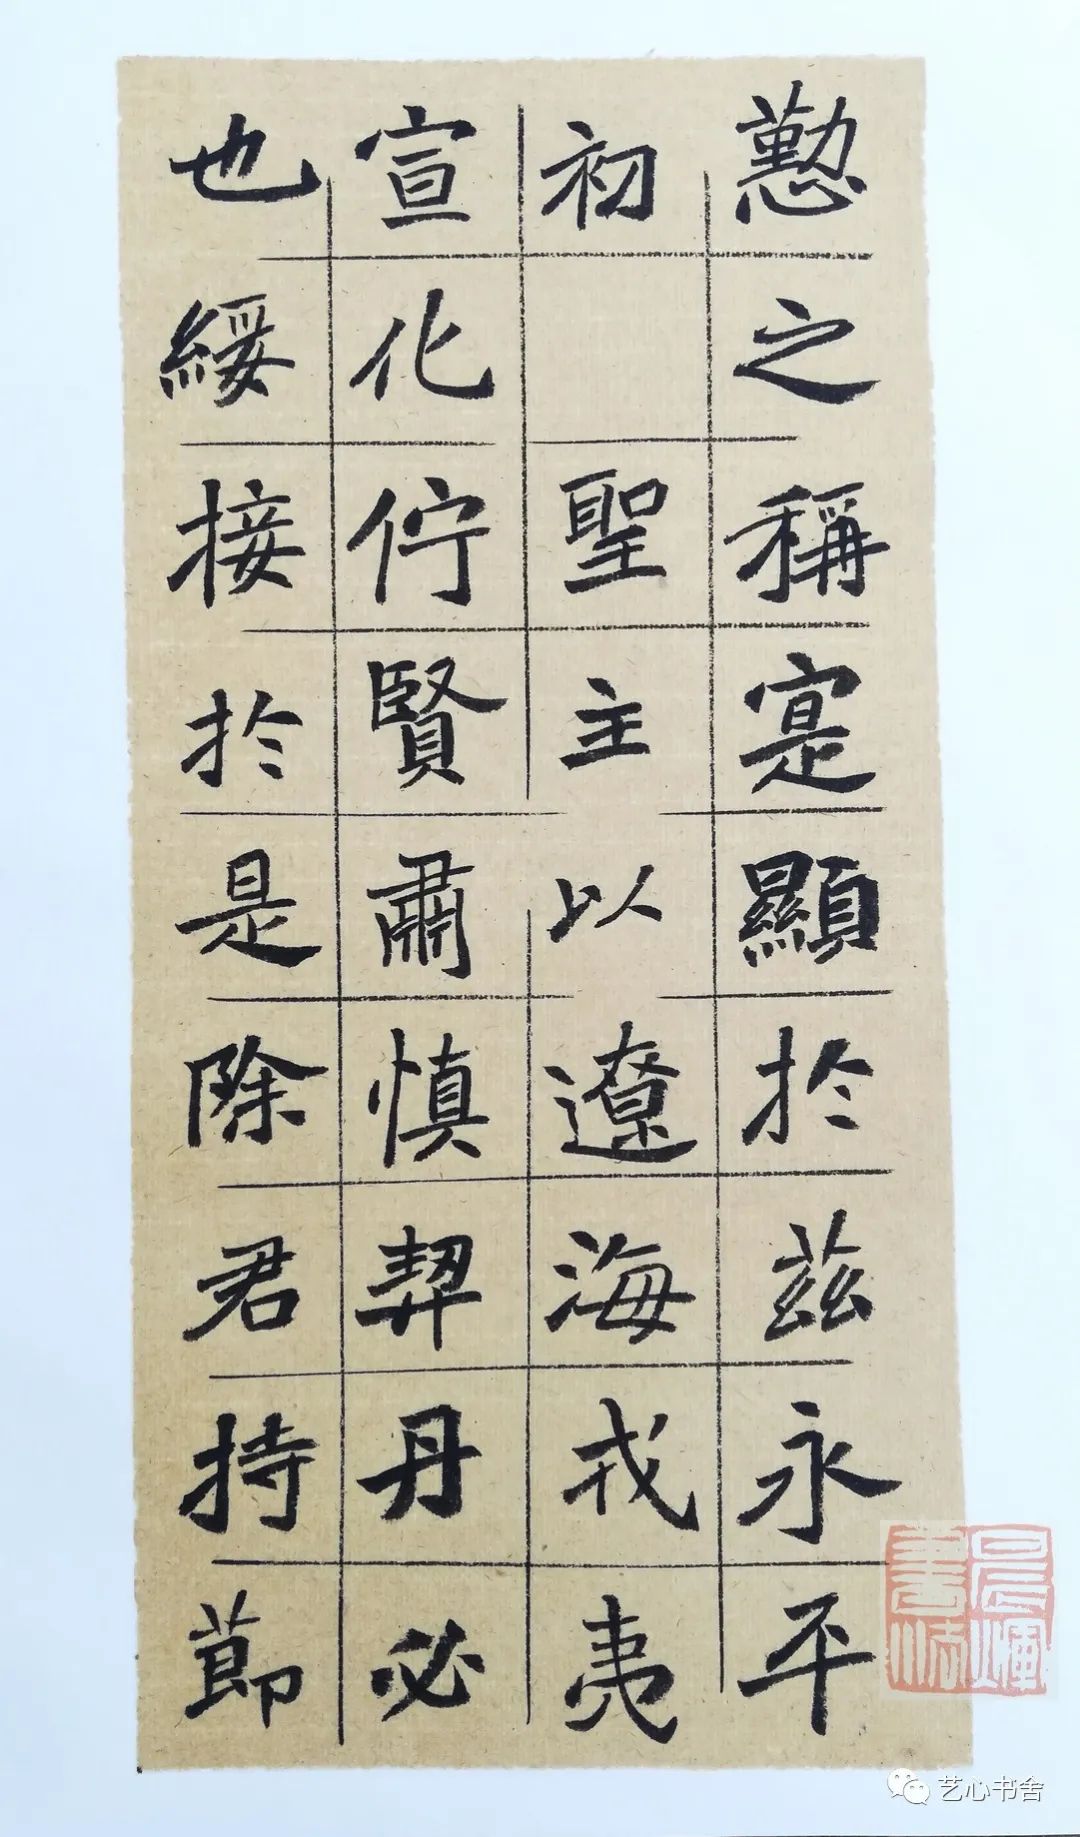 懃之稱寔顯於茲永平
初聖主以遼海戎夷
宣化佇賢肅慎契丹必
也綏接於是除君持節
艺心书舍